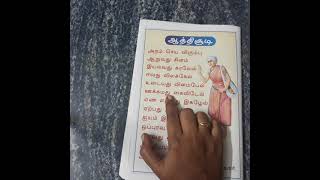 ஆத்திசூடி
அறம் செய விரும்பு
ஆறுவது சினம்
இயல்வது கரவேல்
ஈவது விலக்கேல்
உடையது விளம்பேல்
ஊக்கமது கைவிடேல்
எண் இகழேல்
ஏற்பது
ஐயம்
ஒப்புரவு